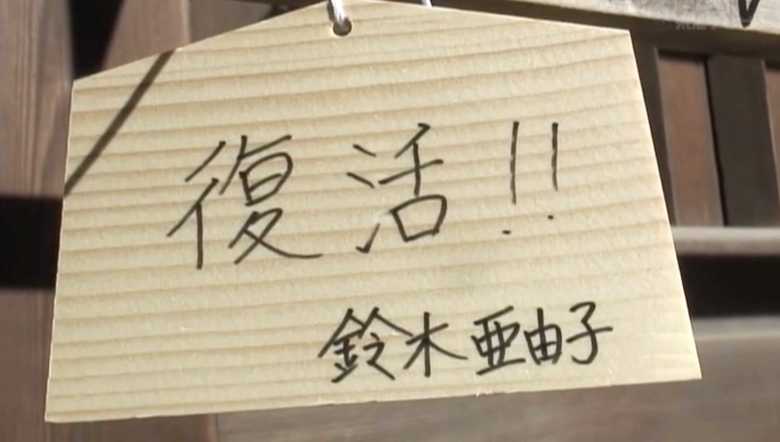 復活!!
鈴木亜由子